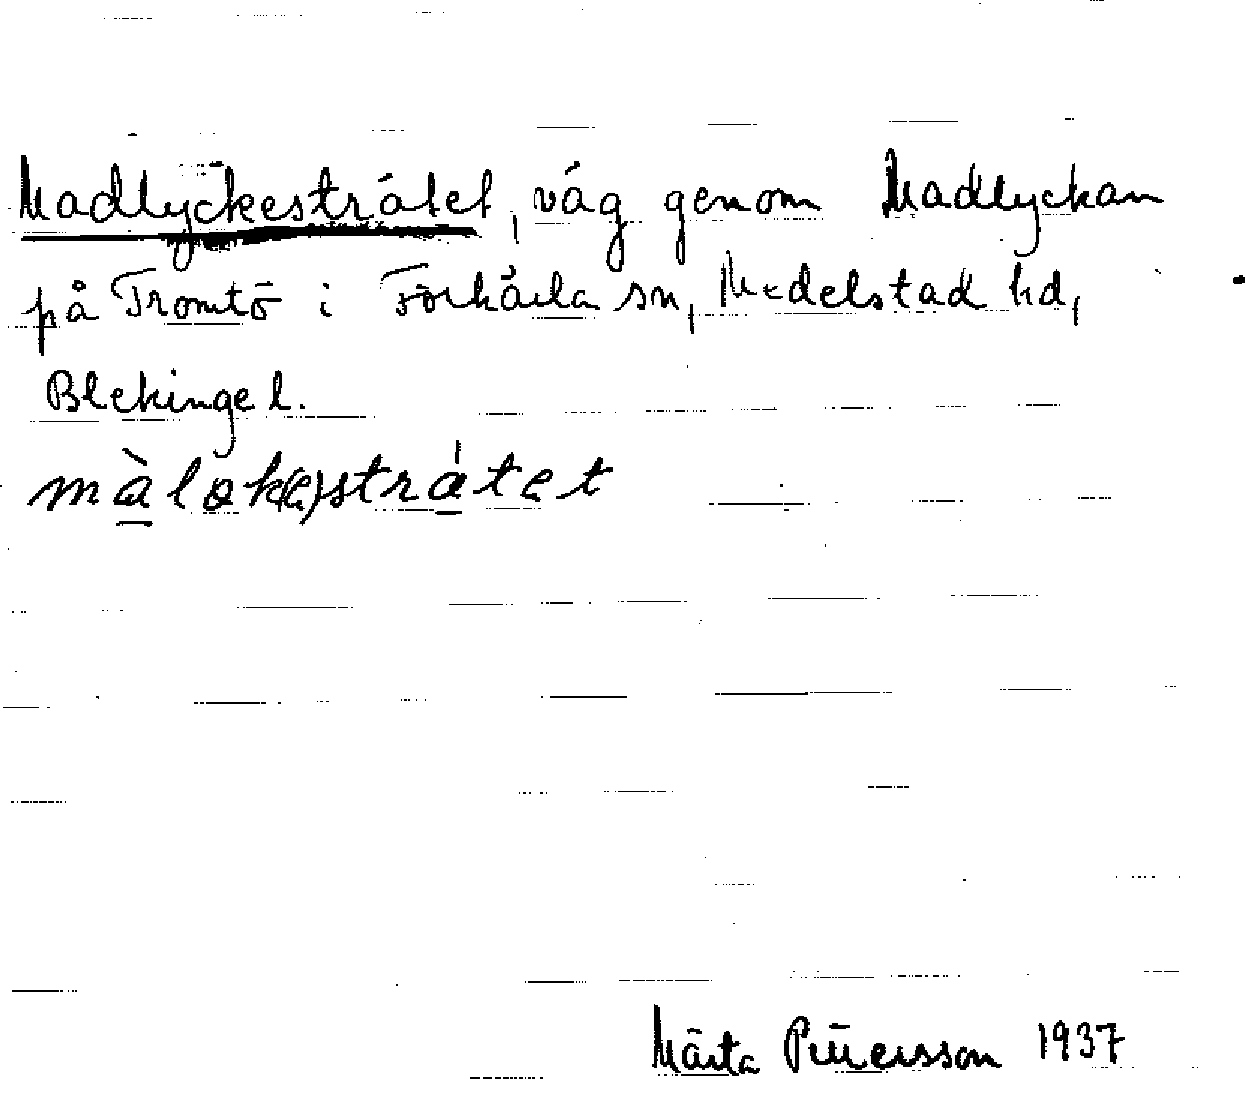 Madlyckestråtet, väg genom Madlyckan
på Tromtö i Förkärla sn, Medelstad hd,
Blekinge l.
màlok(e)strátet
Märta 1937